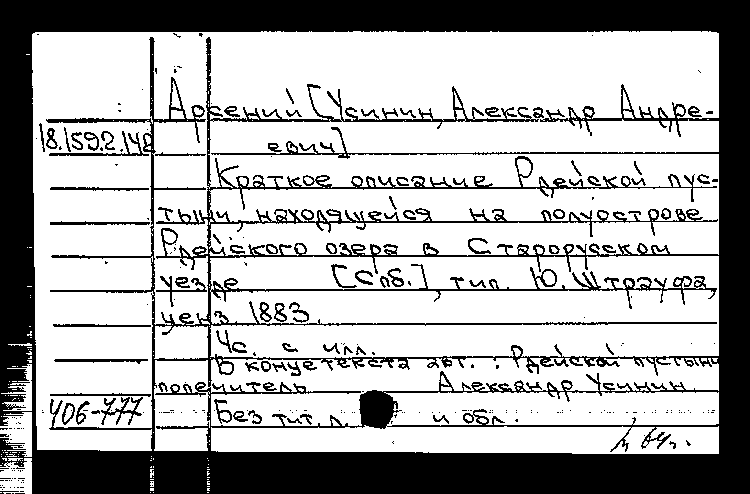 Арсений [Усинин, Александр Андре-
18.159.2.148 евич]
Краткое описание Рдейской пус-
тыни, находящейся на полуострове
Рдейского озера в Старорусском
уезде [Спб.], тип. Ю. Штрауфа,
ценз 1883.
4с. с илл.
В конце текста авт. : Рдейской пустыни
попечитель Александр Усинин
406-777 Без тит. л. и обл.